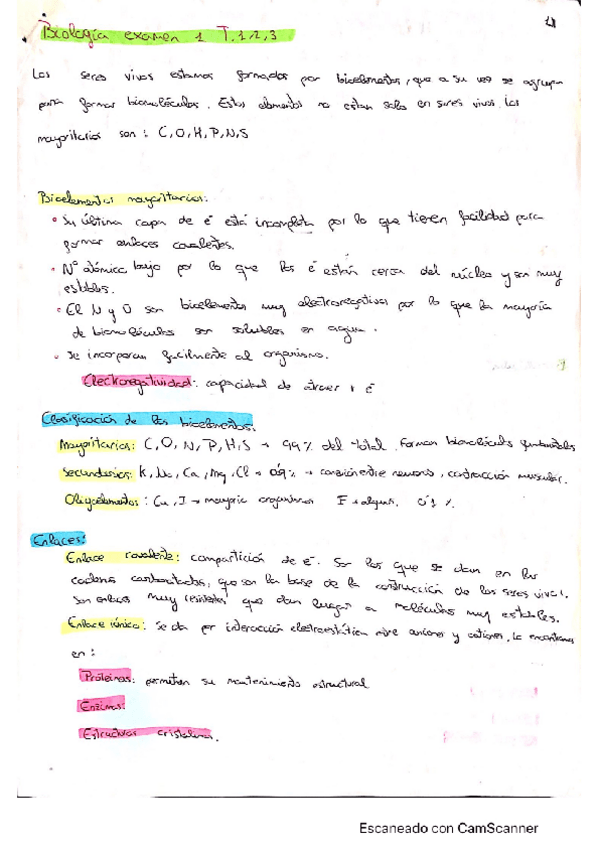 Biología examen 1 T.1,2,3
Los seres vivos estamos formados por bioelementos, que a su vez se agrupan
para formar biomoléculas. Estos elementos no estan solo en seres vivos. Los
mayoritarios son: C, O, H, P, N, S
Bioelementos mayoritarios:
Su última capa de é está incompleta por lo que tienen facilidad para
formar enlaces covalentes.
Nº atómico bajo por lo que los é están cerca del núcleo y son muy
estables.
El N y O son bioelementos muy electronegativos por lo que la mayoría
de biomoléculas son solubles en agua.
Se incorporan facilmente al organismo.
Electronegatividad: capacidad de atraer é
Clasificación de los bioelementos.
Mayoritarios: C, O, N, P, H, S → 99% del total. Forman biomoléculas fundamentales
Secundarios: K, Na, Ca, Mg, Cl → 0'9% → conexión entre neuronas, contracción muscular.
Oligoelementos: Cu, I → mayoría organismos F → algunos. 0'1%.
Enlaces:
Enlace covalente: compartición de é. Son los que se dan en las
cadenas carbonatadas, que son la base de la construcción de los seres vivos.
Son enlaces muy resistentes que dan lugar a moléculas muy estables.
Enlace iónico: Se da por interacción electroestática entre aniones y cationes, lo encontramos
en:
Proteinas: permiten su mantenimiento estructural
Enzimas:
Estructuras cristalinas.
Escaneado con CamScanner